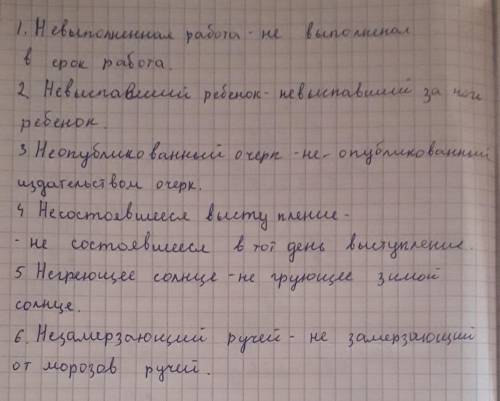 1. Невыполненная работа - не выполненая
в срок работа.
2. Невыспавший ребенок - невыспавший за ночь
ребенок.
3. Неопубликованный очерк - не - опубликованный
издательством очерк.
4. Несостоявшееся выступление -
- не состоявшееся в тот день выступление.
5. Негреющее солнце - не грующее зимой
солнце.
6. Незамерзающий ручей - не замерзающий
от морозов ручей.